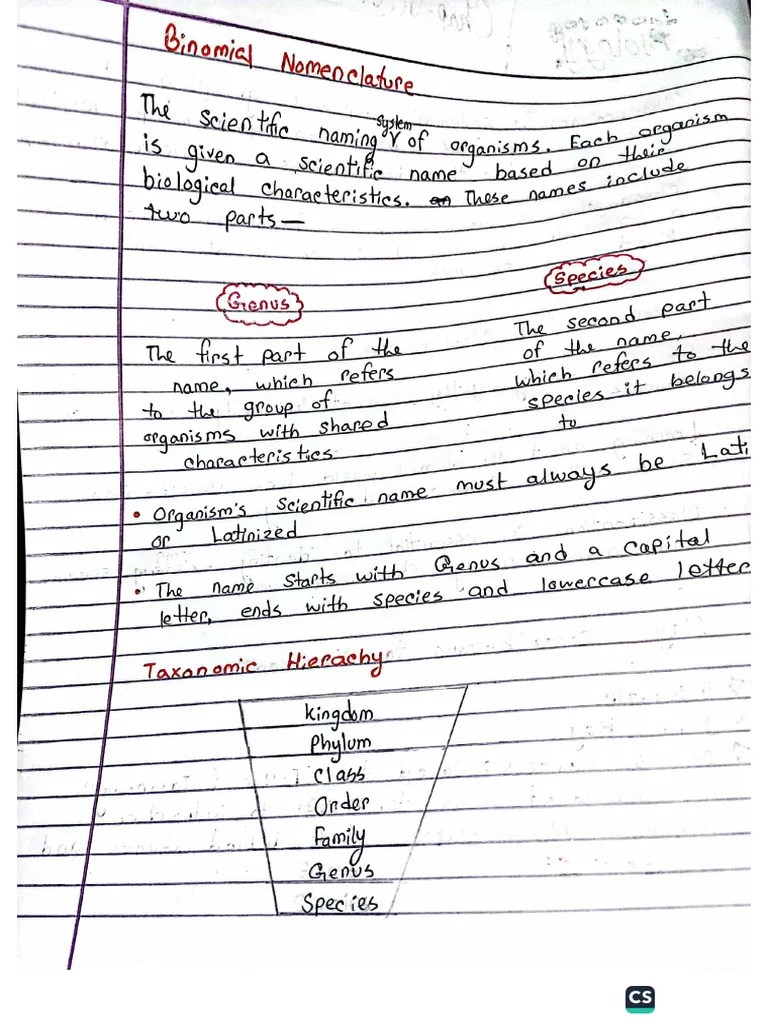 Binomial Nomenclature
The scientific naming system of organisms. Each organism
is given a scientific name based on their
biological characteristics. These names include
two parts—
Genus
The first part of the
name, which refers
to the group of
organisms with shared
characteristics
Species
The second part
of the name,
which refers to the
species it belongs
to
• Organism's scientific name must always be Lati
or Latinized
• The name starts with Genus and a capital
letter, ends with species and lowercase letter
Taxonomic Hierachy
Kingdom
Phylum
Class
Order
Family
Genus
Species
CS